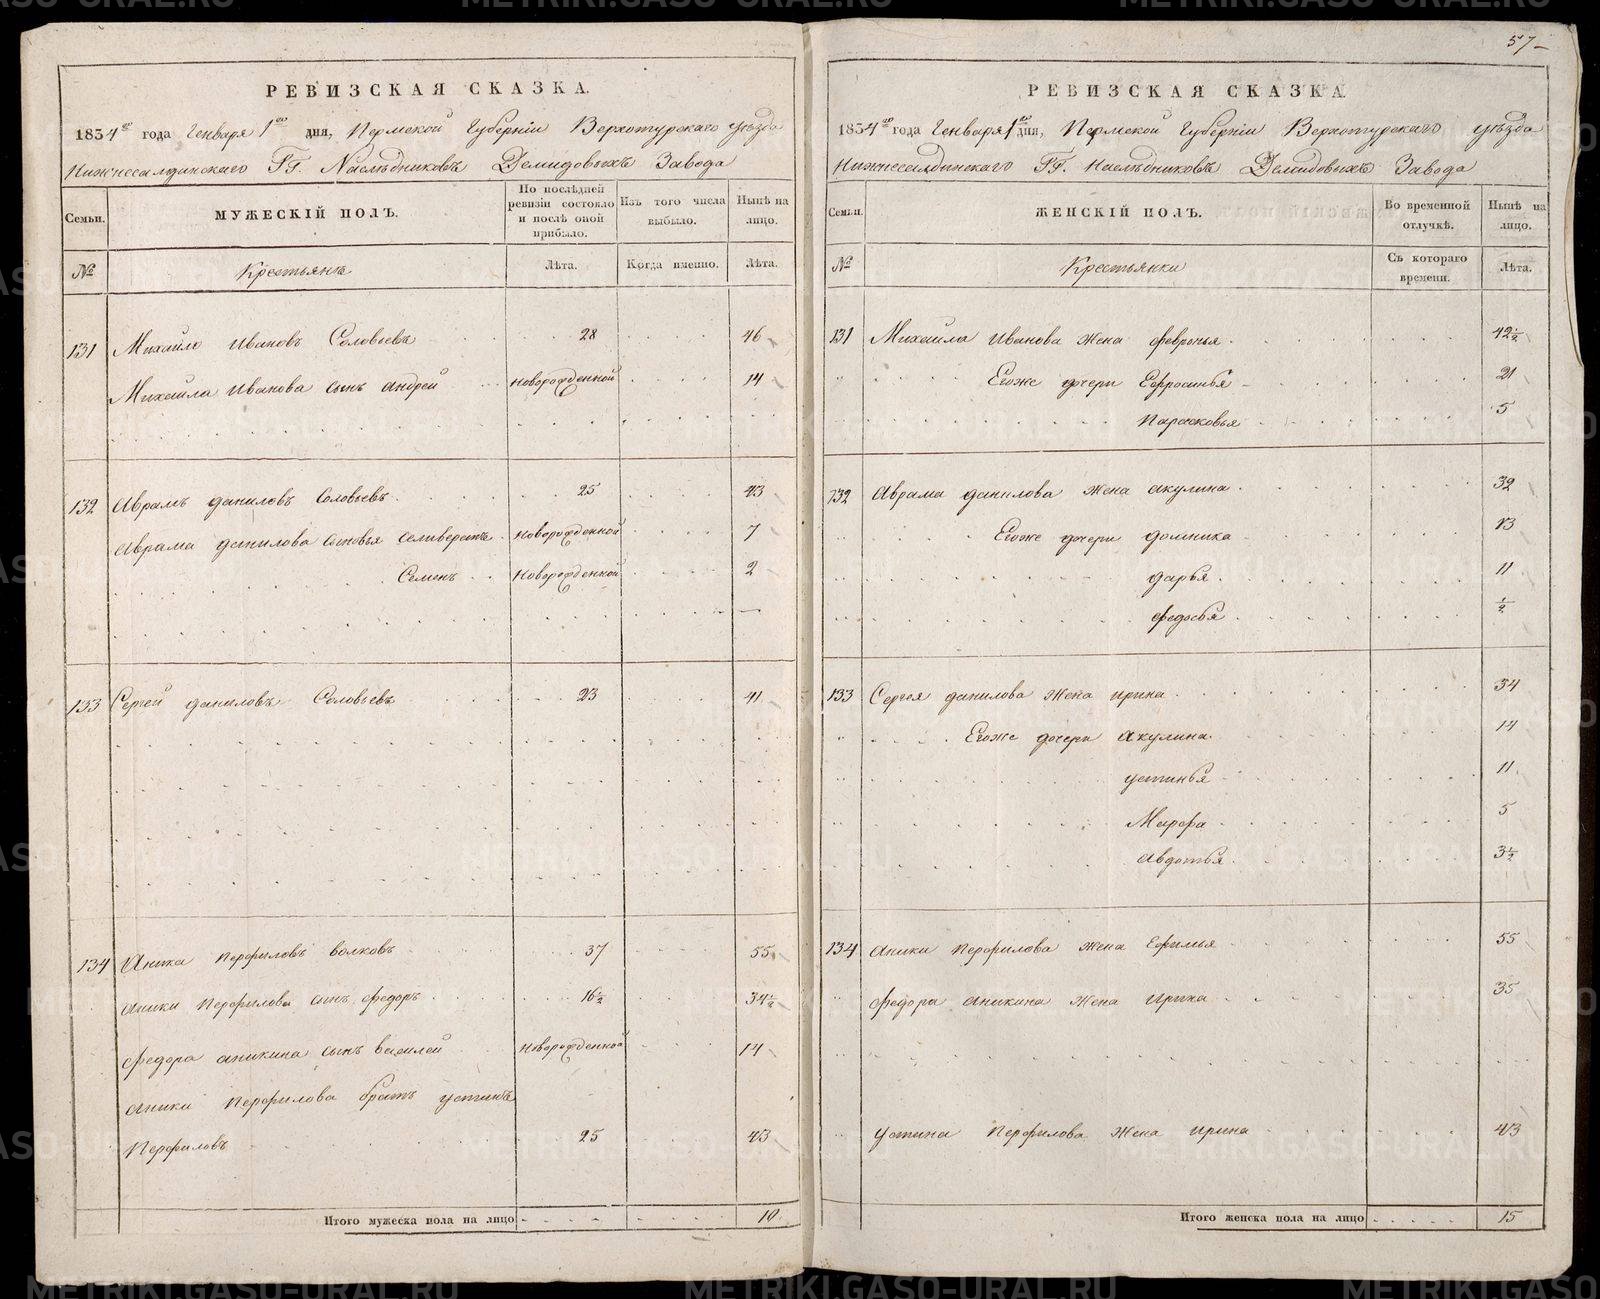 РЕВИЗСКАЯ СКАЗКА.
1834го года Генваря 1го дня, Пермской Губерніи Верхотурскаго уѣзда
Нижнесалдинскаго ГГ. Наслѣдниковъ Демидовыхъ Завода
Семьи. МУЖЕСКІЙ ПОЛЪ. По послѣдней ревизіи состояло и послѣ оной прибыло. Изъ того числа выбыло. Нынѣ на лицо.
№ Крестьянъ Лѣта. Когда именно. Лѣта.
131 Михайло Ивановъ Соловьевъ 28 46
Михайла Иванова сынъ андрей новорожденной 14
132 Аврамъ даниловъ Соловьевъ 25 43
Аврама данилова сыновья Селиверстъ новорожденной 7
Семенъ новорожденной 2
133 Сергей даниловъ Соловьевъ 23 41
134 Аника Перфиловъ волковъ 37 55
аники Перфилова сынъ федоръ 16½ 34½
федора аникина сынъ василей новорожденной 14
аники Перфилова братъ устинъ
Перфиловъ 25 43
Итого мужеска пола на лицо 10
57
РЕВИЗСКАЯ СКАЗКА
1834го года Генваря 1го дня, Пермской Губерніи Верхотурскаго уѣзда
Нижнесалдинскаго ГГ. Наслѣдниковъ Демидовыхъ Завода
Семьи. ЖЕНСКІЙ ПОЛЪ. Во временной отлучкѣ. Нынѣ на лицо.
№ Крестьянки Съ котораго времени. Лѣта.
131 Михайла Иванова жена февронья 42½
Егоже дочери Ефросинья 21
Парасковья 5
132 Аврама данилова жена акулина 32
Егоже дочери домника 13
дарья 11
федосья ½
133 Сергея данилова жена ирина 34
Егоже дочери акулина 14
устинья 11
Марфа 5
авдотья 3½
134 аники Перфилова жена Ефимья 55
федора аникина жена ирина 35
устина Перфилова жена ирина 43
Итого женска пола на лицо 15
METRIKI.GASO-URAL.RU